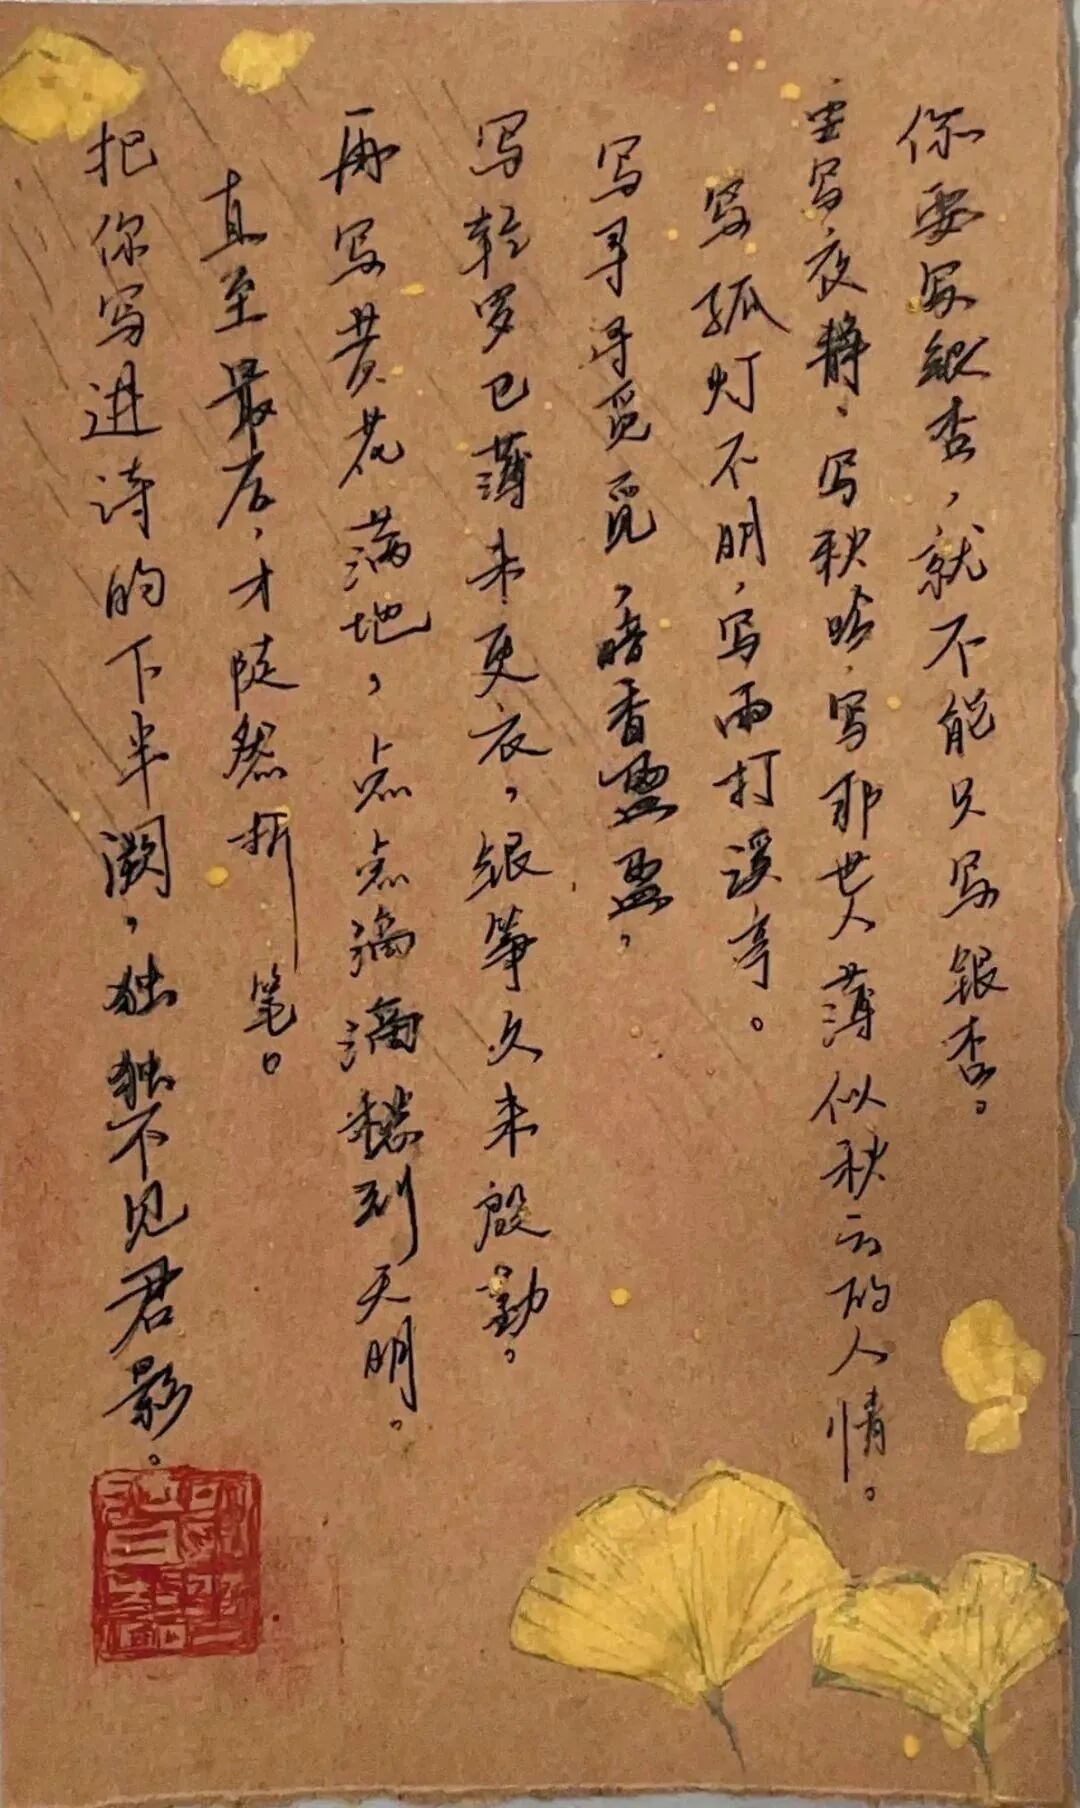 你要写银杏，就不能只写银杏。
要写夜静。写秋吟，写那世人薄似秋云的人情。
写孤灯不明，写雨打溪亭。
写寻寻觅觅，暗香盈盈。
写轻罗已薄未更衣，银筝久未殷勤。
再写黄花满地，点点滴滴愁到天明。
直至最后，才陡然折笔。
把你写进诗的下半阕，独独不见君影。